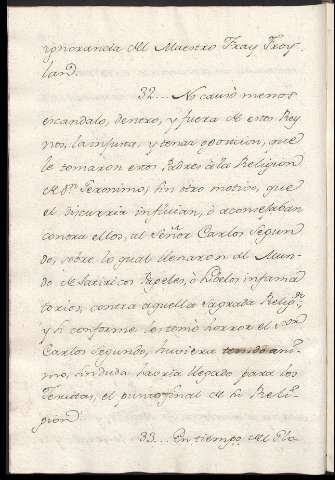 ignorancia del Maestro Fray Froy-
lan.
32... No causò menos
escandalo, dentro, y fuera de estos Rey
nos, la injusta, y tenaz oposicion, que
le tomaron estos Padres à la Religion
de Sn. Geronimo, sin otro motivo, que
el discurrir influian, ò aconsejaban
contra ellos, al Señor Carlos Segun
do, sobre lo qual llenaron al Mun-
do de Satiricos Papeles, ò libelos infama
torios, contra aquella Sagrada Religon.
y si conforme les temò horror el Sor.
Carlos Segundo, huviera tenido ani-
mo, sin duda havria llegado para los
Jesuitas, el punto final de su Reli-
gion.
33... En tiempo del Pla